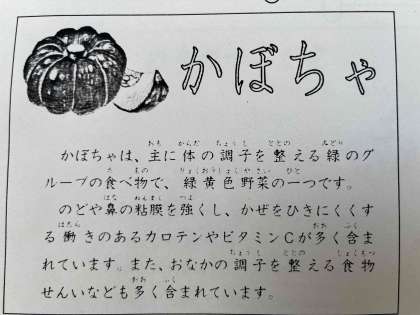 かぼちゃ
かぼちゃは、主に体の調子を整える緑のグ
ループの食べ物で、緑黄色野菜の一つです。
のどや鼻の粘膜を強くし、かぜをひきにくくす
る働きのあるカロテンやビタミンCが多く含ま
れています。また、おなかの調子を整える食物
せんいなども多く含まれています。